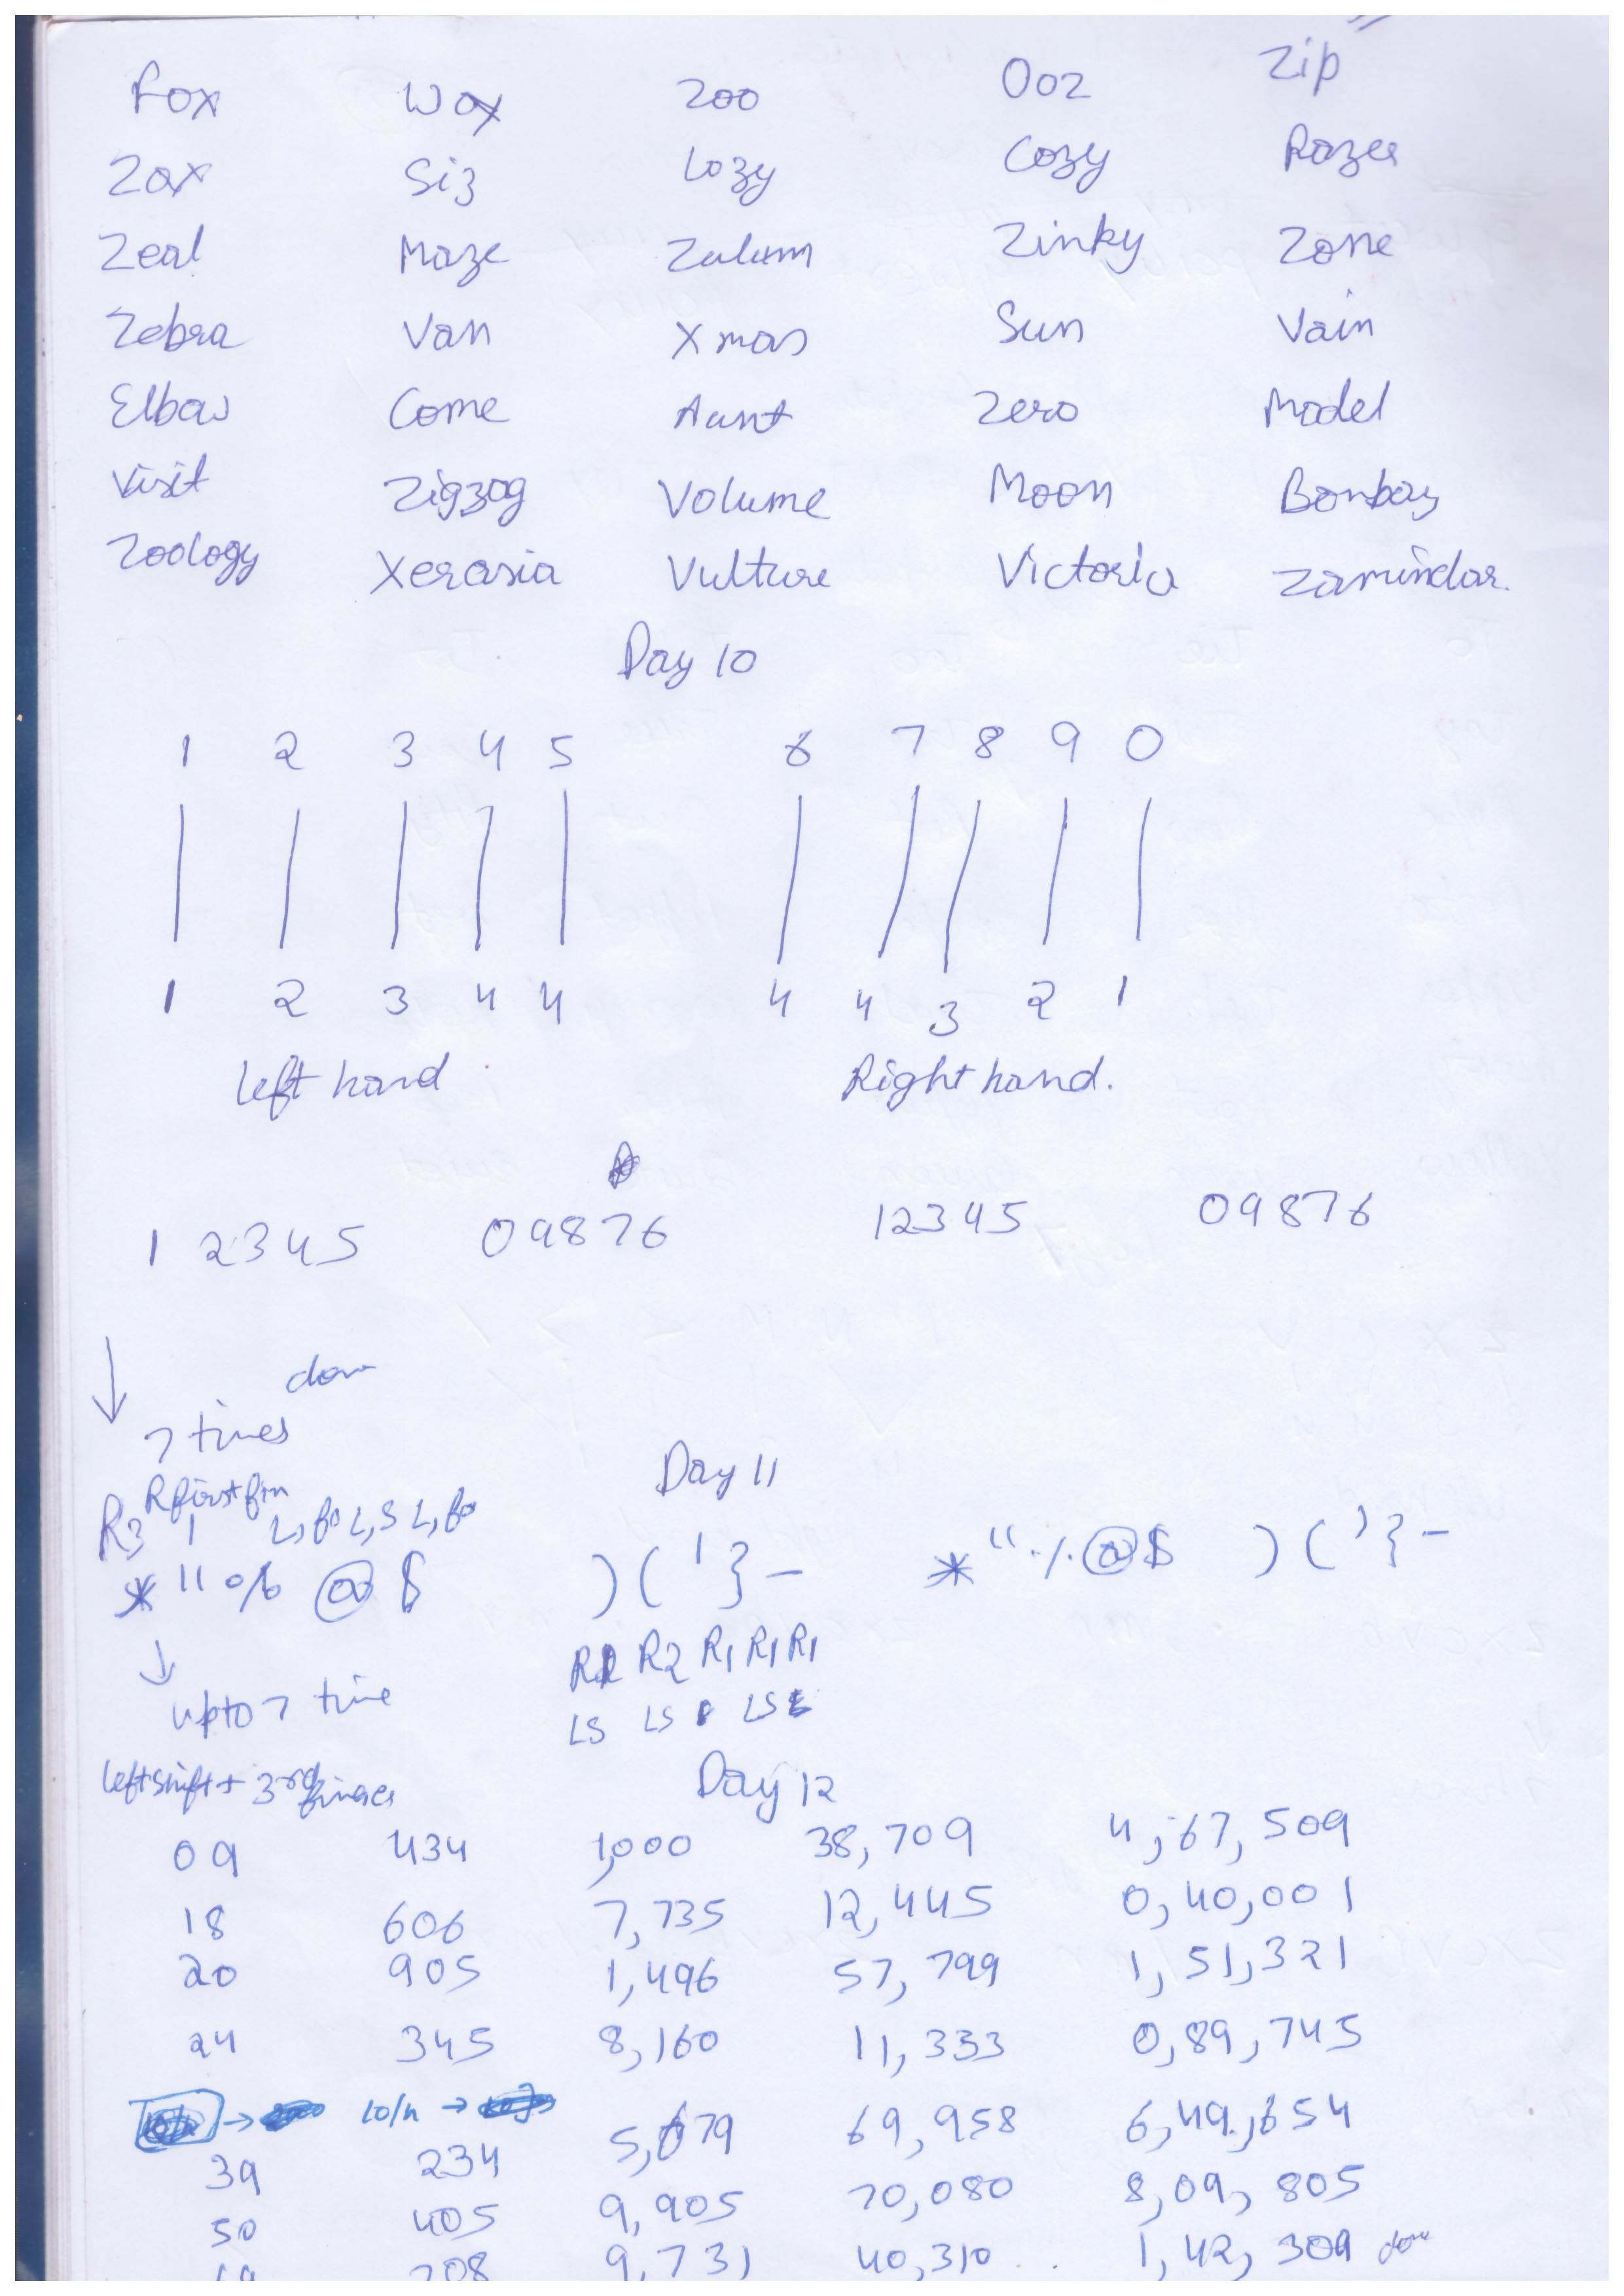 Fox Wox Zoo Ooz Zip
Zax Siz Lozy Cozy Razer
Zeal Maze Zulum Zinky Zone
Zebra Van Xmas Sun Vain
Elbow Come Aunt Zero Model
Visit Zigzag Volume Moon Bombay
Zoology Xerasia Vulture Victoria Zamindar.
Day 10
1 2 3 4 5 6 7 8 9 0
1 2 3 4 4 4 4 3 2 1
Left hand Right hand.
1 2345 09876 12345 09876
done
7 times
Day 11
R first fin
R3 1
* " % @ $ ) ( ' } - * " % @ $ ) ( ' } -
R2 R2 R1 R1 R1
upto 7 time
LS LS LS
left shift + 3rd finger
Day 12
09 434 1,000 38,709 4,67,509
18 606 7,735 12,445 0,40,001
20 905 1,496 57,799 1,51,321
24 345 8,160 11,333 0,89,745
→ lo/n →
39 234 5,679 69,958 6,49,654
50 405 9,905 70,080 8,09,805
708 9,731 40,310 1,42,309 done